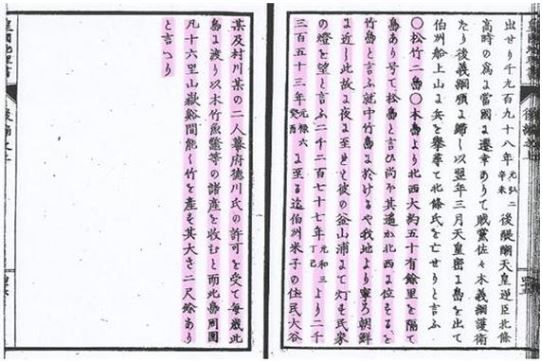 出せり千九百九十八年元弘二辛未後醍醐天皇逆臣北條
高時の爲に當國に遷幸ありて賊黨佐々木義綱護衛
たり後義綱順に歸し以翌年三月天皇密に島を出て
伯州船上山に兵を擧て北條氏を亡せりと言ふ
〇松竹二島〇本島より北西大約五十有餘里を隔て
島あり号て松島と言ひ尚其遥か北西に位するを
竹島と言ふ就中竹島に於けるや我地より寧ろ朝鮮
に近り此故に夜に至ると彼の釜山浦にて灯す民家
の燈を望と言ふ二千二百七十七年元和三丁巳より二千
三百五十三年元禄六癸酉に至る迄伯州米子の住民大谷
某及村川某の二人幕府徳川氏の許可を受て毎歳此
島に渡り以木竹魚鼈等の諸産を收むと而此島周囲
凡十六里山嶽谿間能く竹を産す其大き二尺餘あり
と言へり